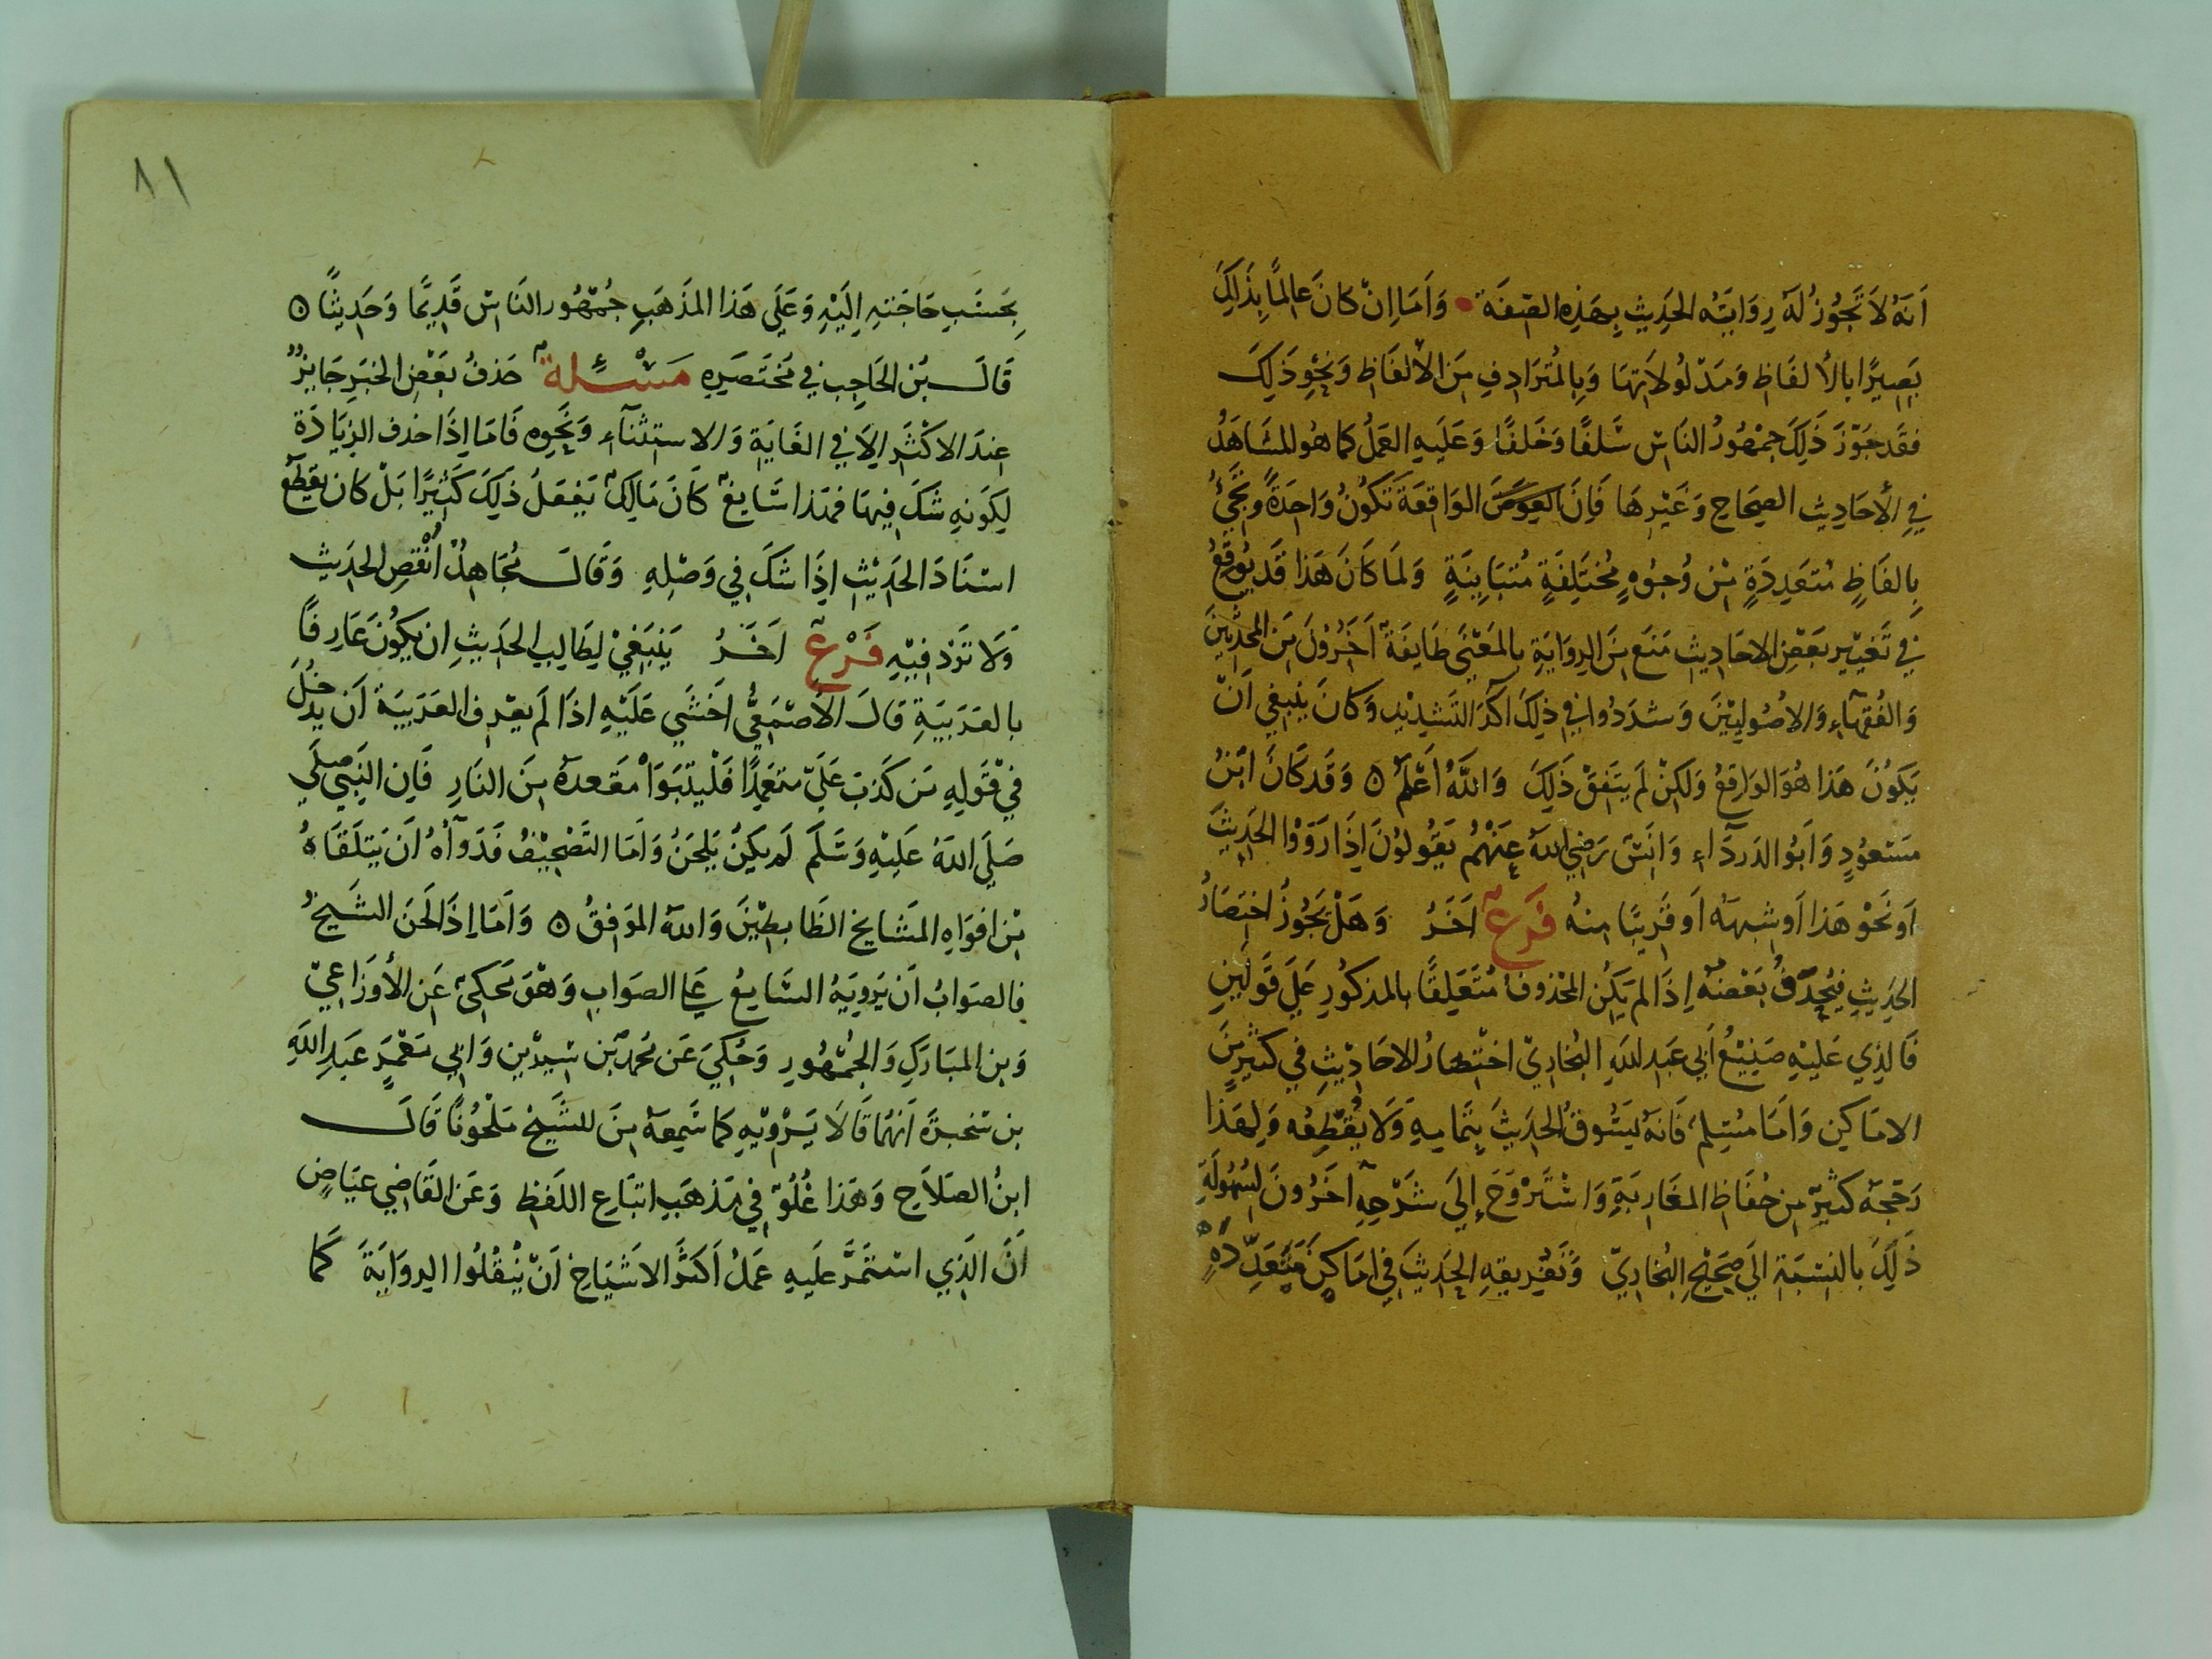 انه لا تجوز له روايته الحديث بهذه الصفة وأما ان كان عالما بذلك
بصيرا بالألفاظ ومدلولاتها وبالمترادف من الألفاظ ونحو ذلك
فقد جوز ذلك جمهور الناس سلفا وخلفا وعليه العمل كما هو المشاهد
في الأحاديث الصحاح وغيرها فان الواقعة تكون واحدة وتجئ
بالفاظ متعددة من وجوه مختلفة متباينة ولما كان هذا قد يوقع
في تغيير بعض الاحاديث منع من الرواية بالمعنى طايفة اخرون من المحدثين
والفقهاء والاصوليين وشددوا في ذلك اكد التشديد وكان ينبغي أن
يكون هذا هو الواقع ولكن لم يتفق ذلك والله أعلم ه وقد كان ابن
مسعود وأبو الدرداء وانس رضي الله عنهم يقولون إذا رووا الحديث
او نحو هذا أو شبهه أو قريبا منه فرع اخر وهل يجوز اختصار
الحديث فيحذف بعضه إذا لم يكن المحذوف متعلقا بالمذكور على قولين
فالذي عليه صنيع أبي عبد الله البخاري اختصار الاحاديث في كثير من
الاماكين واما مسلم فانه يسوق الحديث بتمامه ولا يقطعه ولهذا
رجحه كثير من حفاظ المغاربة واستروح إلى شرحه اخرون لسهولة
ذلك بالنسبة الى صحيح البخاري وتفريقه الحديث في اماكن متعددة
٨١
بحسب حاجته إليه وعلى هذا المذهب جمهور الناس قديما وحديثا ه
قال بن الحاجب في مختصره مسئلة حذف بعض الخبر جايز
عند الاكثر إلا في الغاية والاستثناء ونحوه فاما إذا حذف الزيادة
لكونه شك فيها فهذا سايغ كان مالك يفعل ذلك كثيرا بل كان يقطع
اسناد الحديث إذا شك في وصله وقال مجاهد أنقص الحديث
ولا تزد فيه فرع اخر ينبغي لطالب الحديث ان يكون عارفا
بالعربية قال الأصمعي اخشى عليه اذا لم يعرف العربية أن يدخل
في قوله من كذب علي متعمدا فليتبوأ مقعده من النار فإن النبي صلى
صلى الله عليه وسلم لم يكن يلحن وأما التصحيف فدواه أن يتلقاه
من افواه المشايخ الظابطين والله الموفق ه وأما إذا لحن الشيخ
فالصواب أن يرويه السايع على الصواب وهو محكي عن الأوزاعي
وبن المبارك والجمهور وحكي عن محمد بن سيرين وابي معمر عبد الله
بن سخبرة انهما قالا يرويه كما سمعه من للشيخ ملحونا قال
ابن الصلاح وهذا غلو في مذهب اتباع اللفظ وعن القاضي عياض
أن الذي استمر عليه عمل أكثر الاشياخ أن ينقلوا الرواية كما